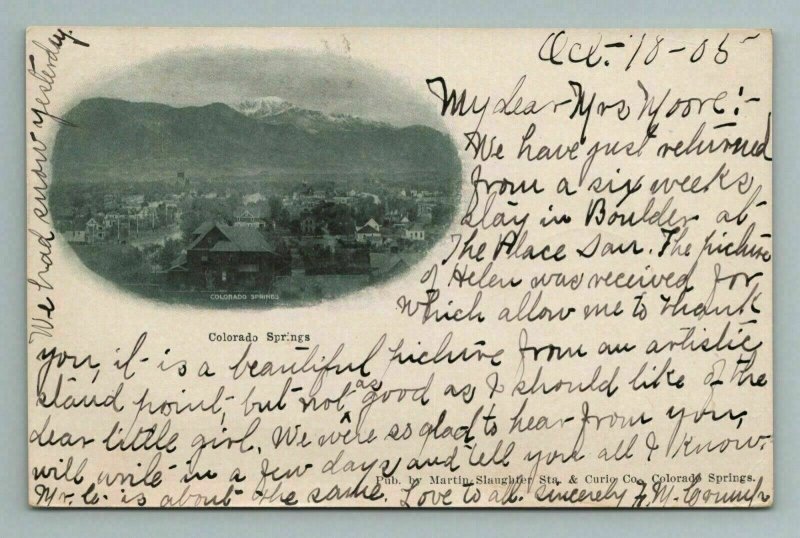 Oct. 18-05
My dear Mrs Moore:-
We have just returned
from a six weeks
stay in Boulder at
The Place San. The picture
of Helen was received for
which allow me to thank
you, it is a beautiful picture from an artistic
stand point, but not as good as I should like of the
dear little girl. We were so glad to hear from you,
will write in a few days and tell you all I know.
Mr. C. is about the same. Love to all. Sincerely
We had snow yesterday.
COLORADO SPRINGS
Colorado Springs
Pub. by Martin-Slaughter Sta. & Curio Co., Colorado Springs.